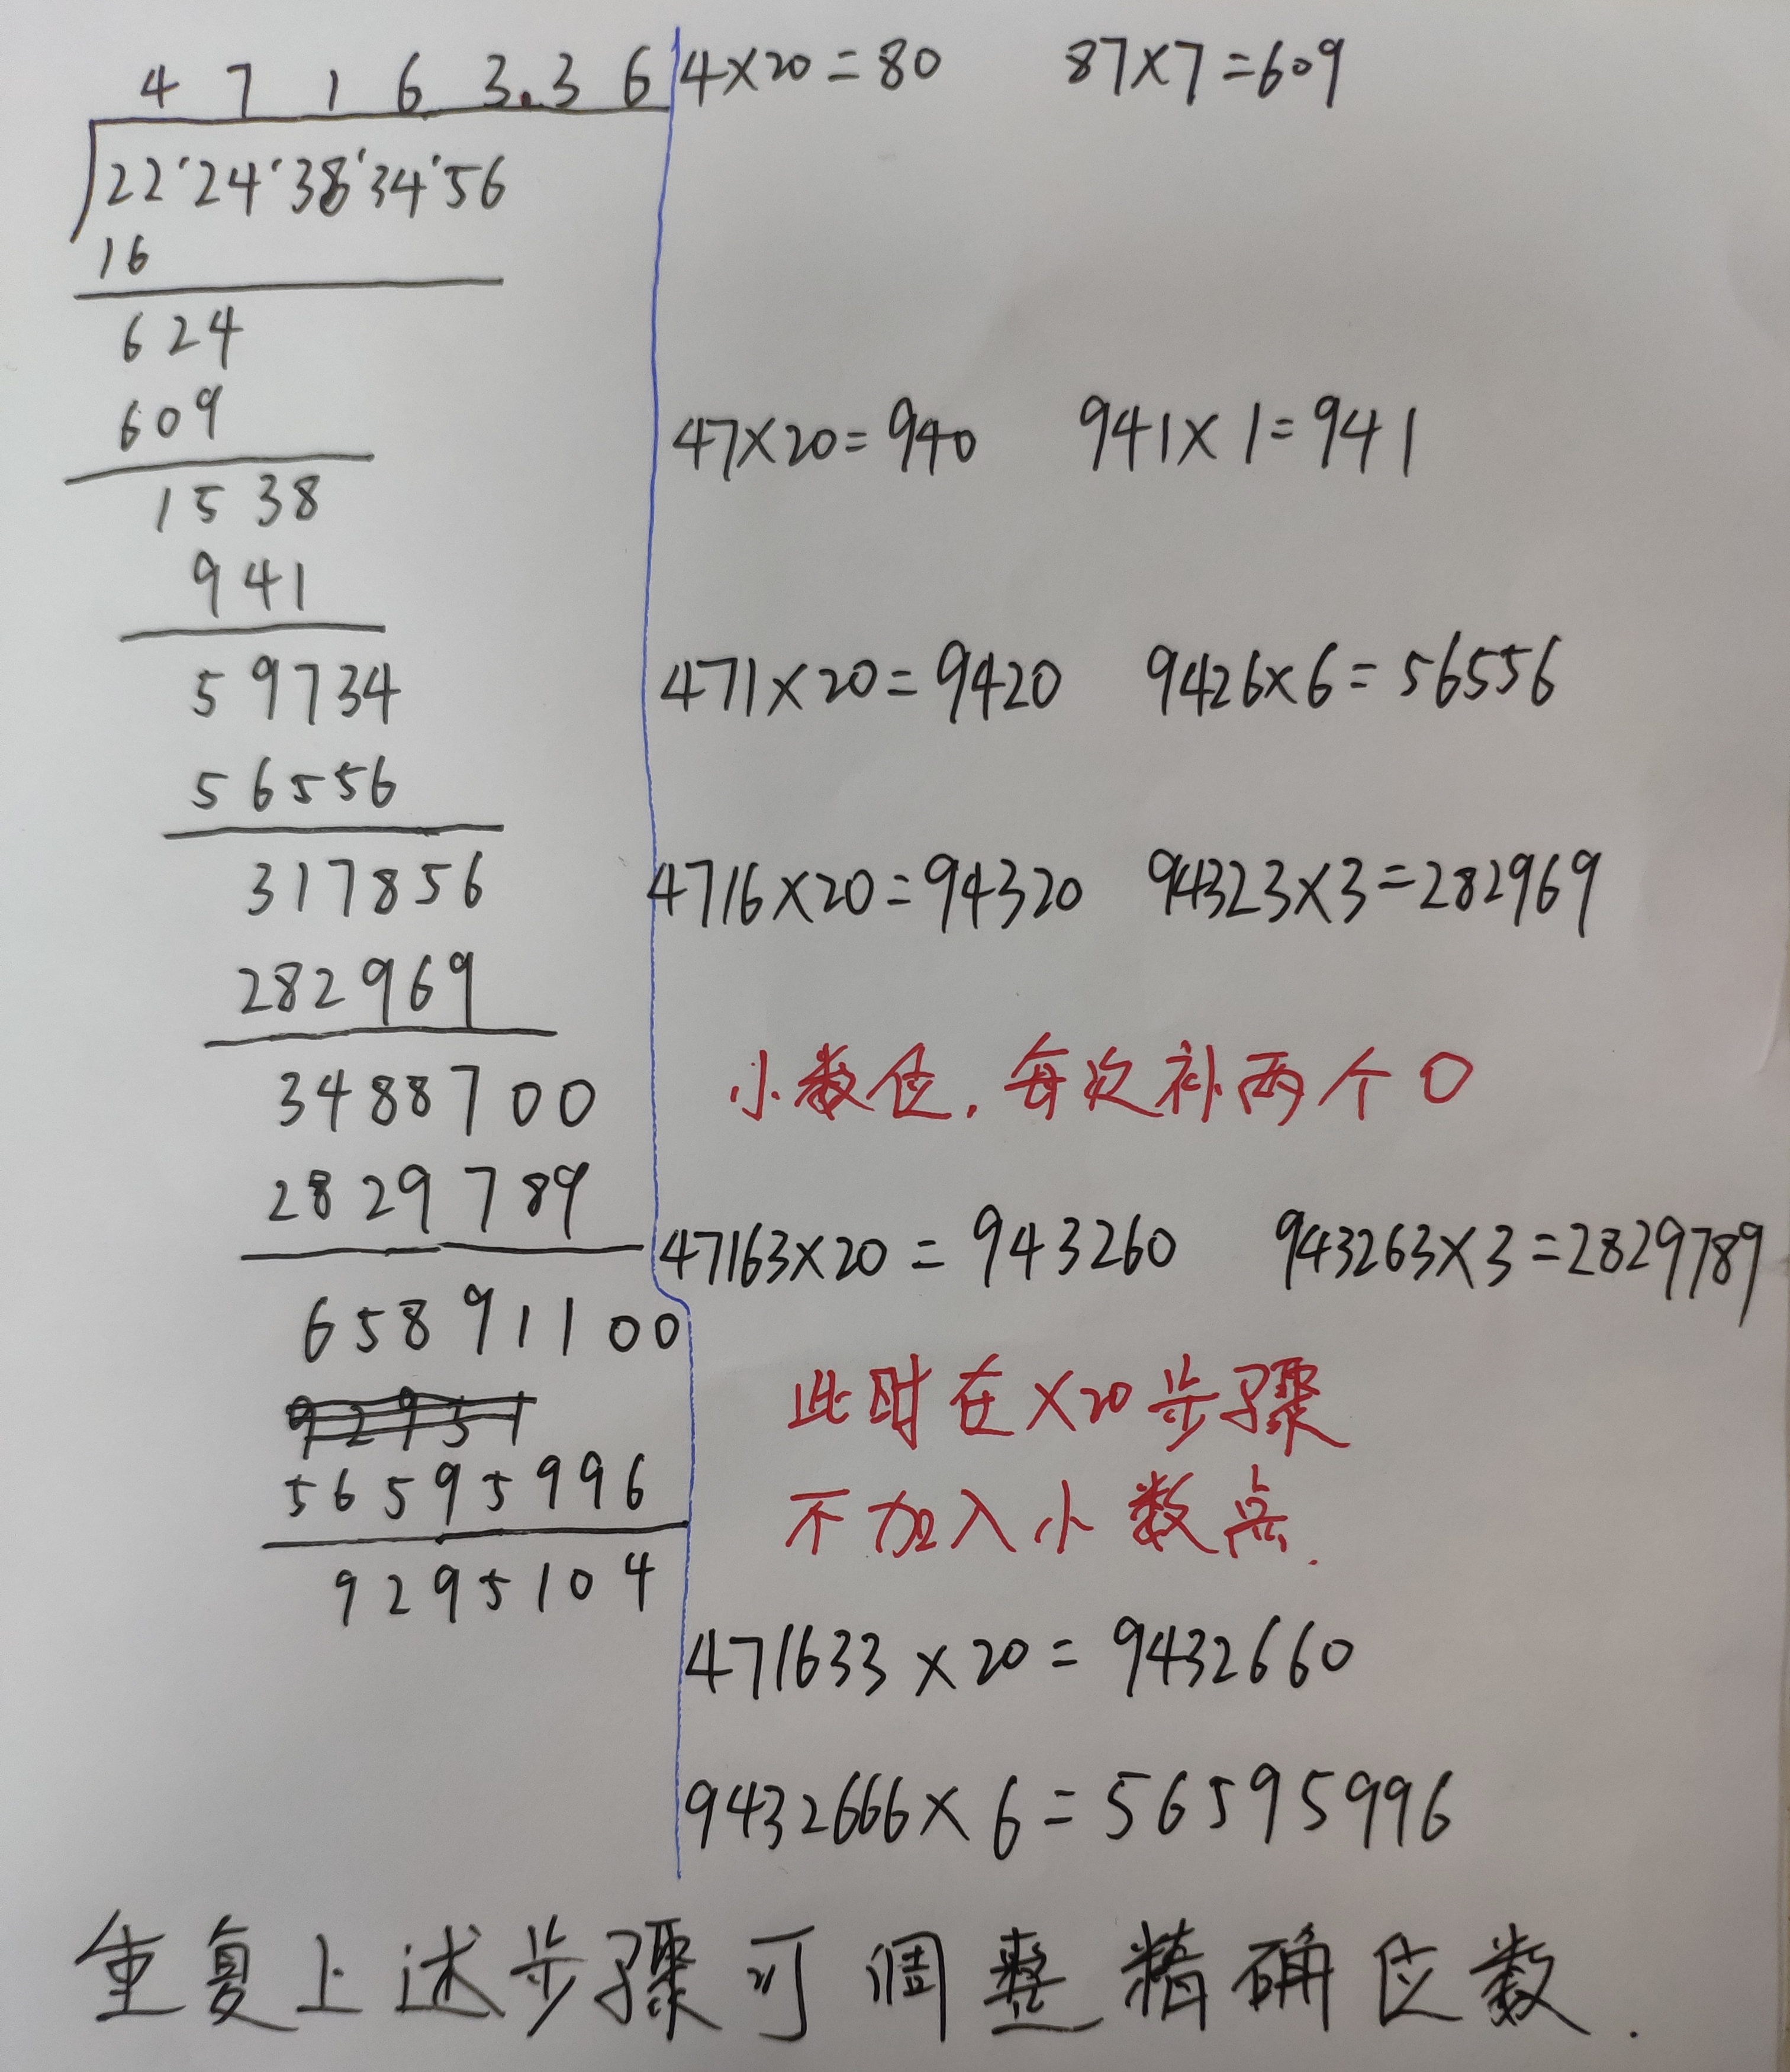 4 7 1 6 3.3 6 4×20=80 87×7=609
22'24'38'34'56
16
624
609
47×20=940 941×1=941
1538
941
59734
471×20=9420 9426×6=56556
56556
317856
4716×20=94320 94323×3=282969
282969
3488700
小数位,每次补两个0
2829789
47163×20=943260 943263×3=2829789
65891100
此时在×20步骤
56595996
不加入小数点.
9295104
471633×20=9432660
9432666×6=56595996
重复上述步骤可调整精确位数.